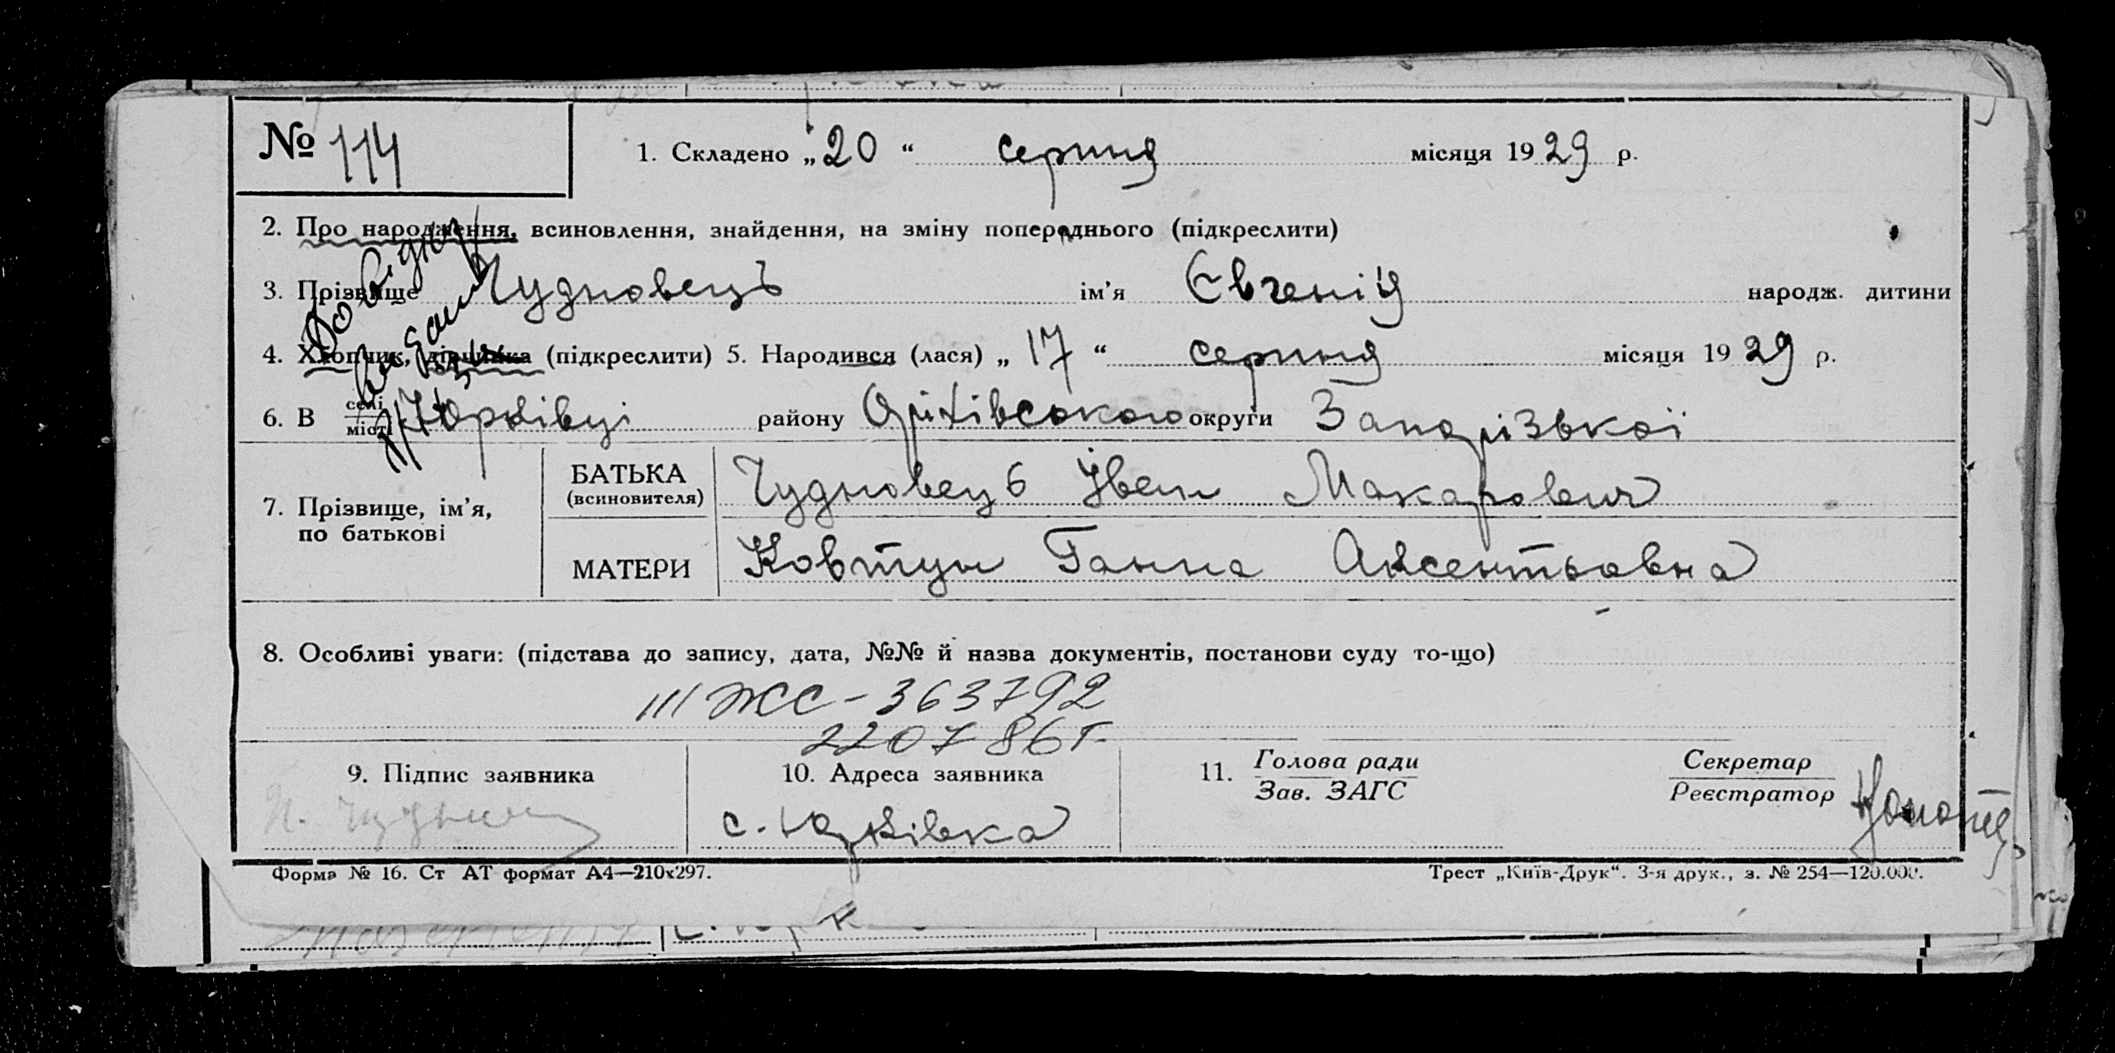 № 114
1. Складено „20“ серпня місяця 1929 р.
2. Про народження, всиновлення, знайдення, на зміну попереднього (підкреслити)
3. Прізвище Чудновець ім’я Євгенія народж. дитини
4. Хлопчик, дівчинка (підкреслити) 5. Народився (лася) „17“ серпня місяця 1929 р.
6. В селі місті Юрківці району Оріхівського округи Запорізької
7. Прізвище, ім’я, по батькові
БАТЬКА (всиновителя) Чудновець Іван Макарович
МАТЕРИ Ковтун Ганна Авсентьовна
8. Особливі уваги: (підстава до запису, дата, №№ й назва документів, постанови суду то-що)
III ЖС - 363792
220786 г.
9. Підпис заявника
10. Адреса заявника
11. Голова ради Зав. ЗАГС
Секретар Реєстратор
с. Юрківка
Форма № 16. Ст АТ формат А4—210х297.
Трест „Київ-Друк“. 3-я друк., з. № 254—120.000.